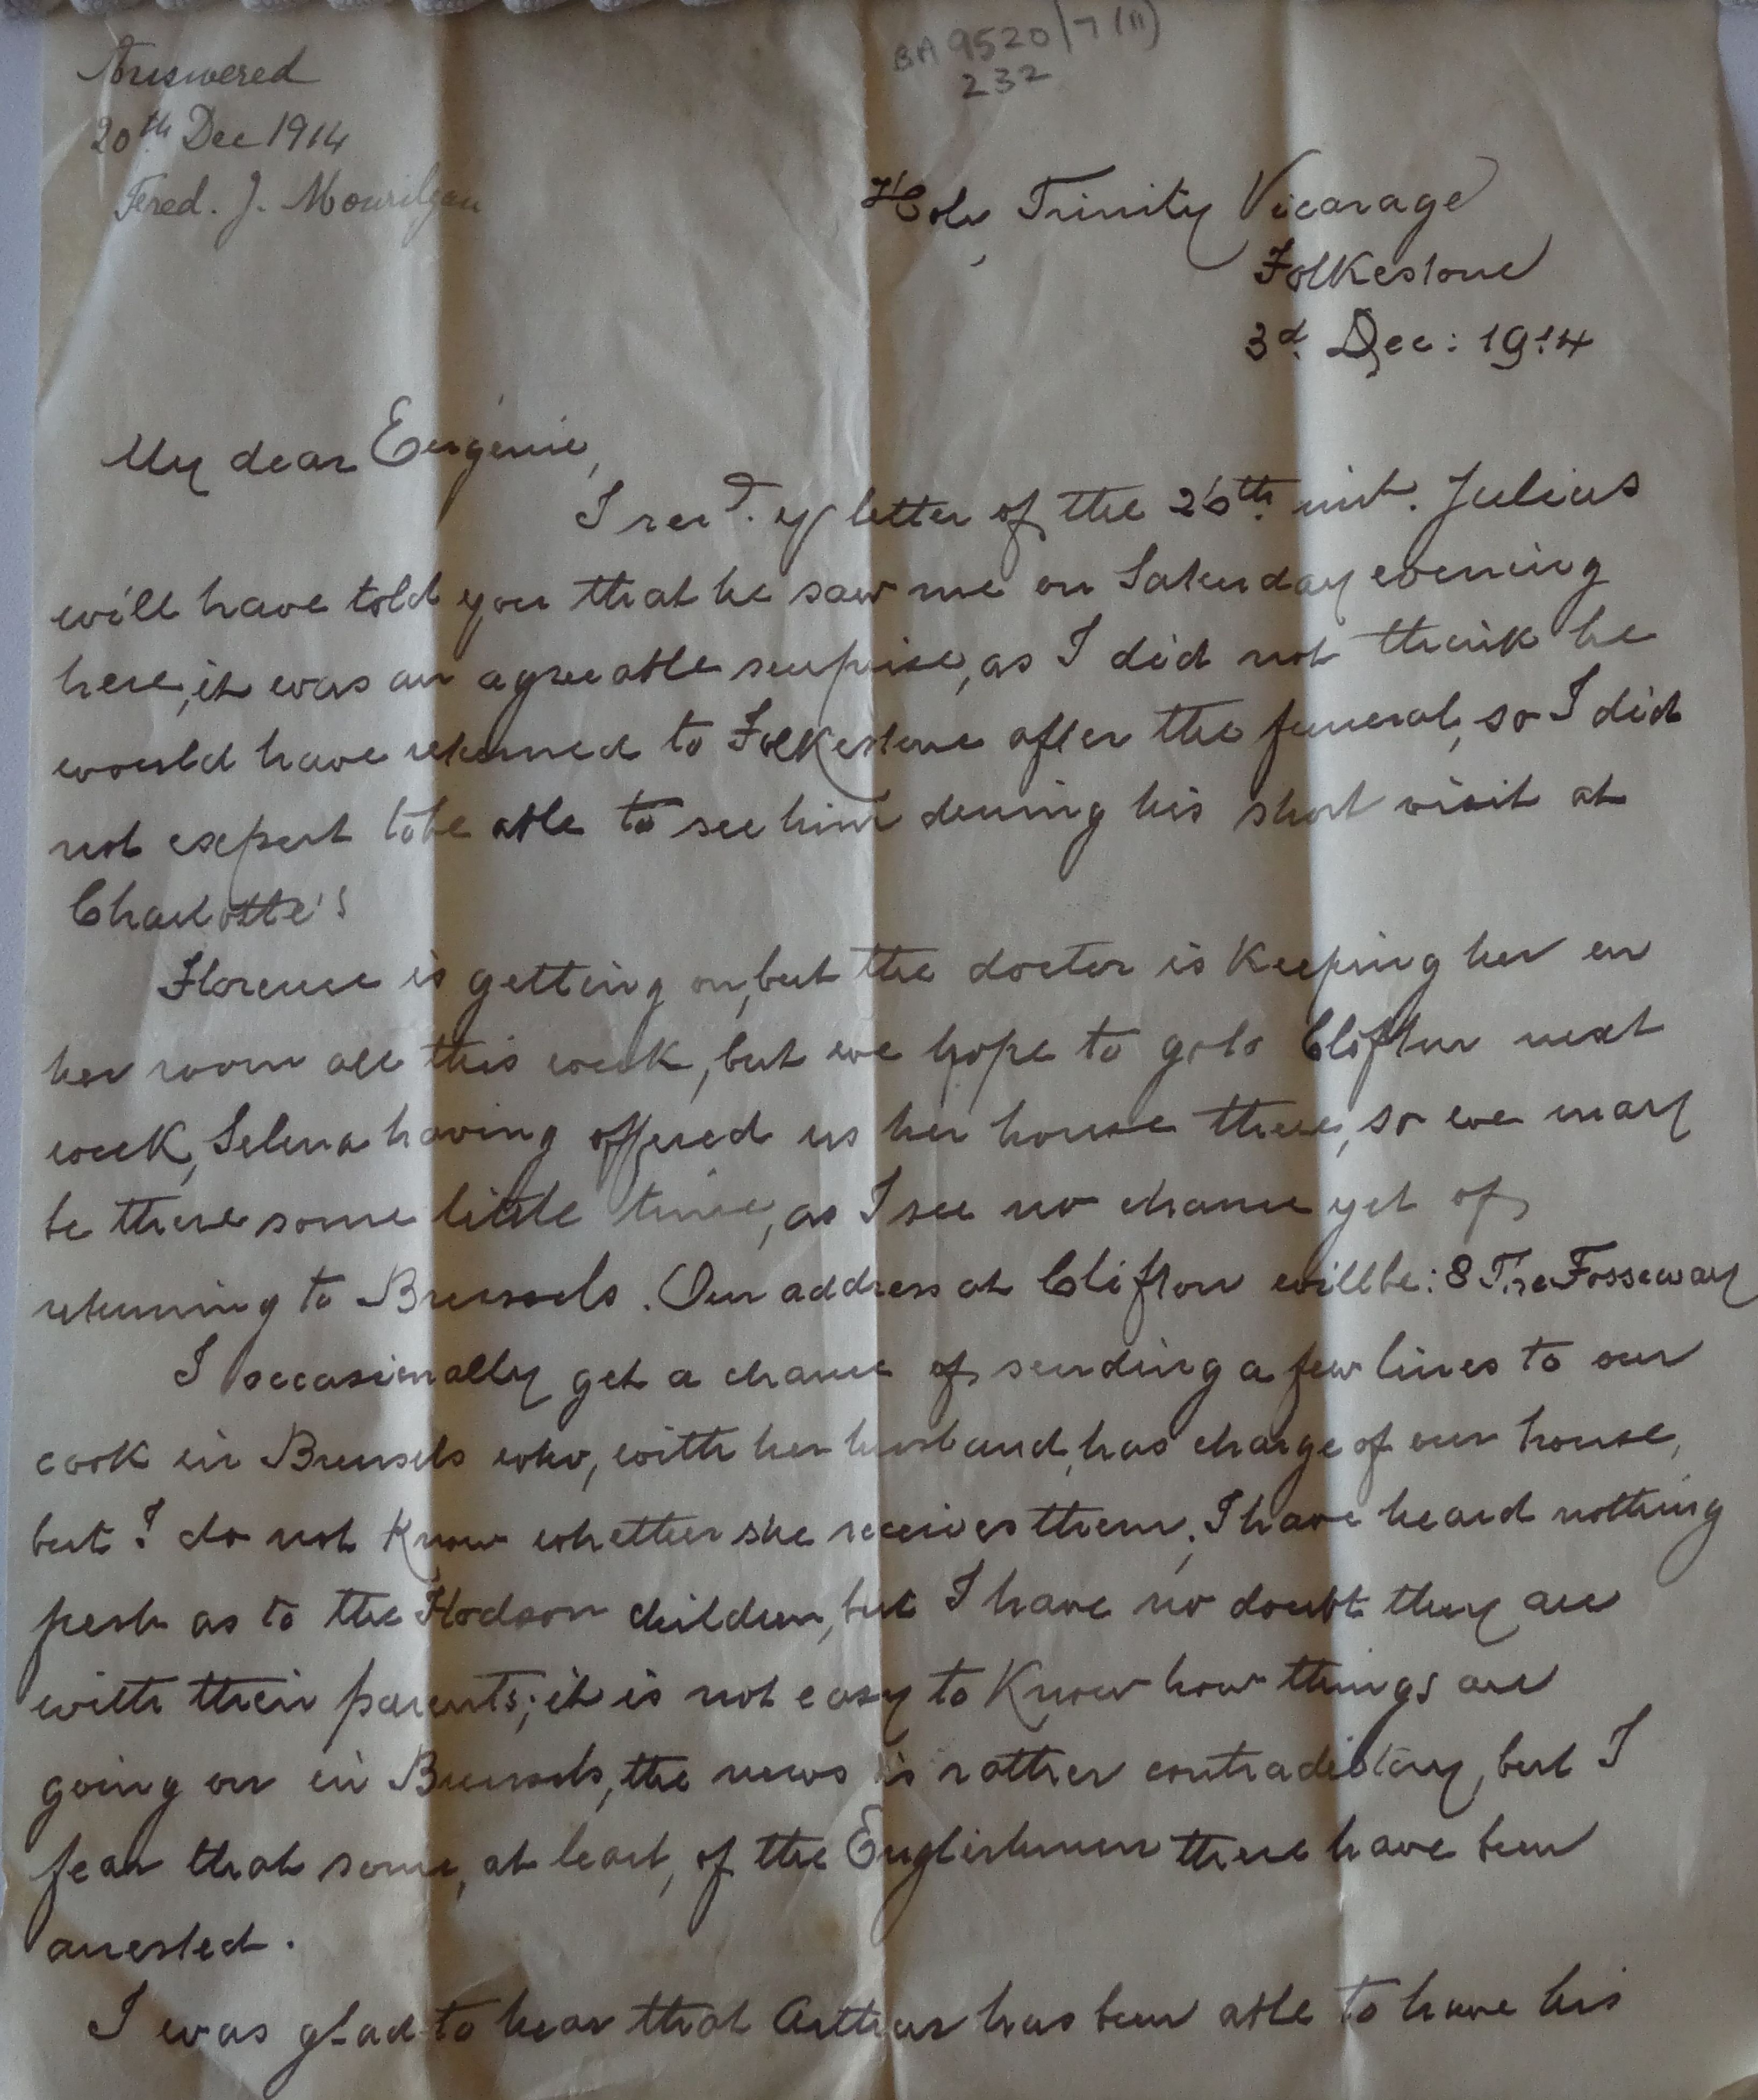 Answered
20th Dec 1914
Fred. J. Mourilyan
BA 9520/7 (11)
232
Holy Trinity Vicarage
Folkestone
3d. Dec: 1914
My dear Eugénie,
I recd. yr letter of the 26th inst. Julius
will have told you that he saw me on Saturday evening
here, it was an agreeable surprise, as I did not think he
would have returned to Folkestone after the funeral, so I did
not expect to be able to see him during his short visit at
Charlotte's
Florence is getting on, but the doctor is keeping her in
her room all this week, but we hope to go to Clifton next
week, Selina having offered us her house there, so we may
be there some little time, as I see no chance yet of
returning to Brussels. Our address at Clifton will be: 8 The Fosseway
I occasionally get a chance of sending a few lines to our
cook in Brussels who, with her husband, has charge of our house,
but I do not know whether she receives them. I have heard nothing
fresh as to the Hodson children, but I have no doubt they are
with their parents; it is not easy to know how things are
going on in Brussels, the news is rather contradictory, but I
fear that some, at least, of the Englishmen there have been
arrested.
I was glad to hear that Arthur has been able to have his